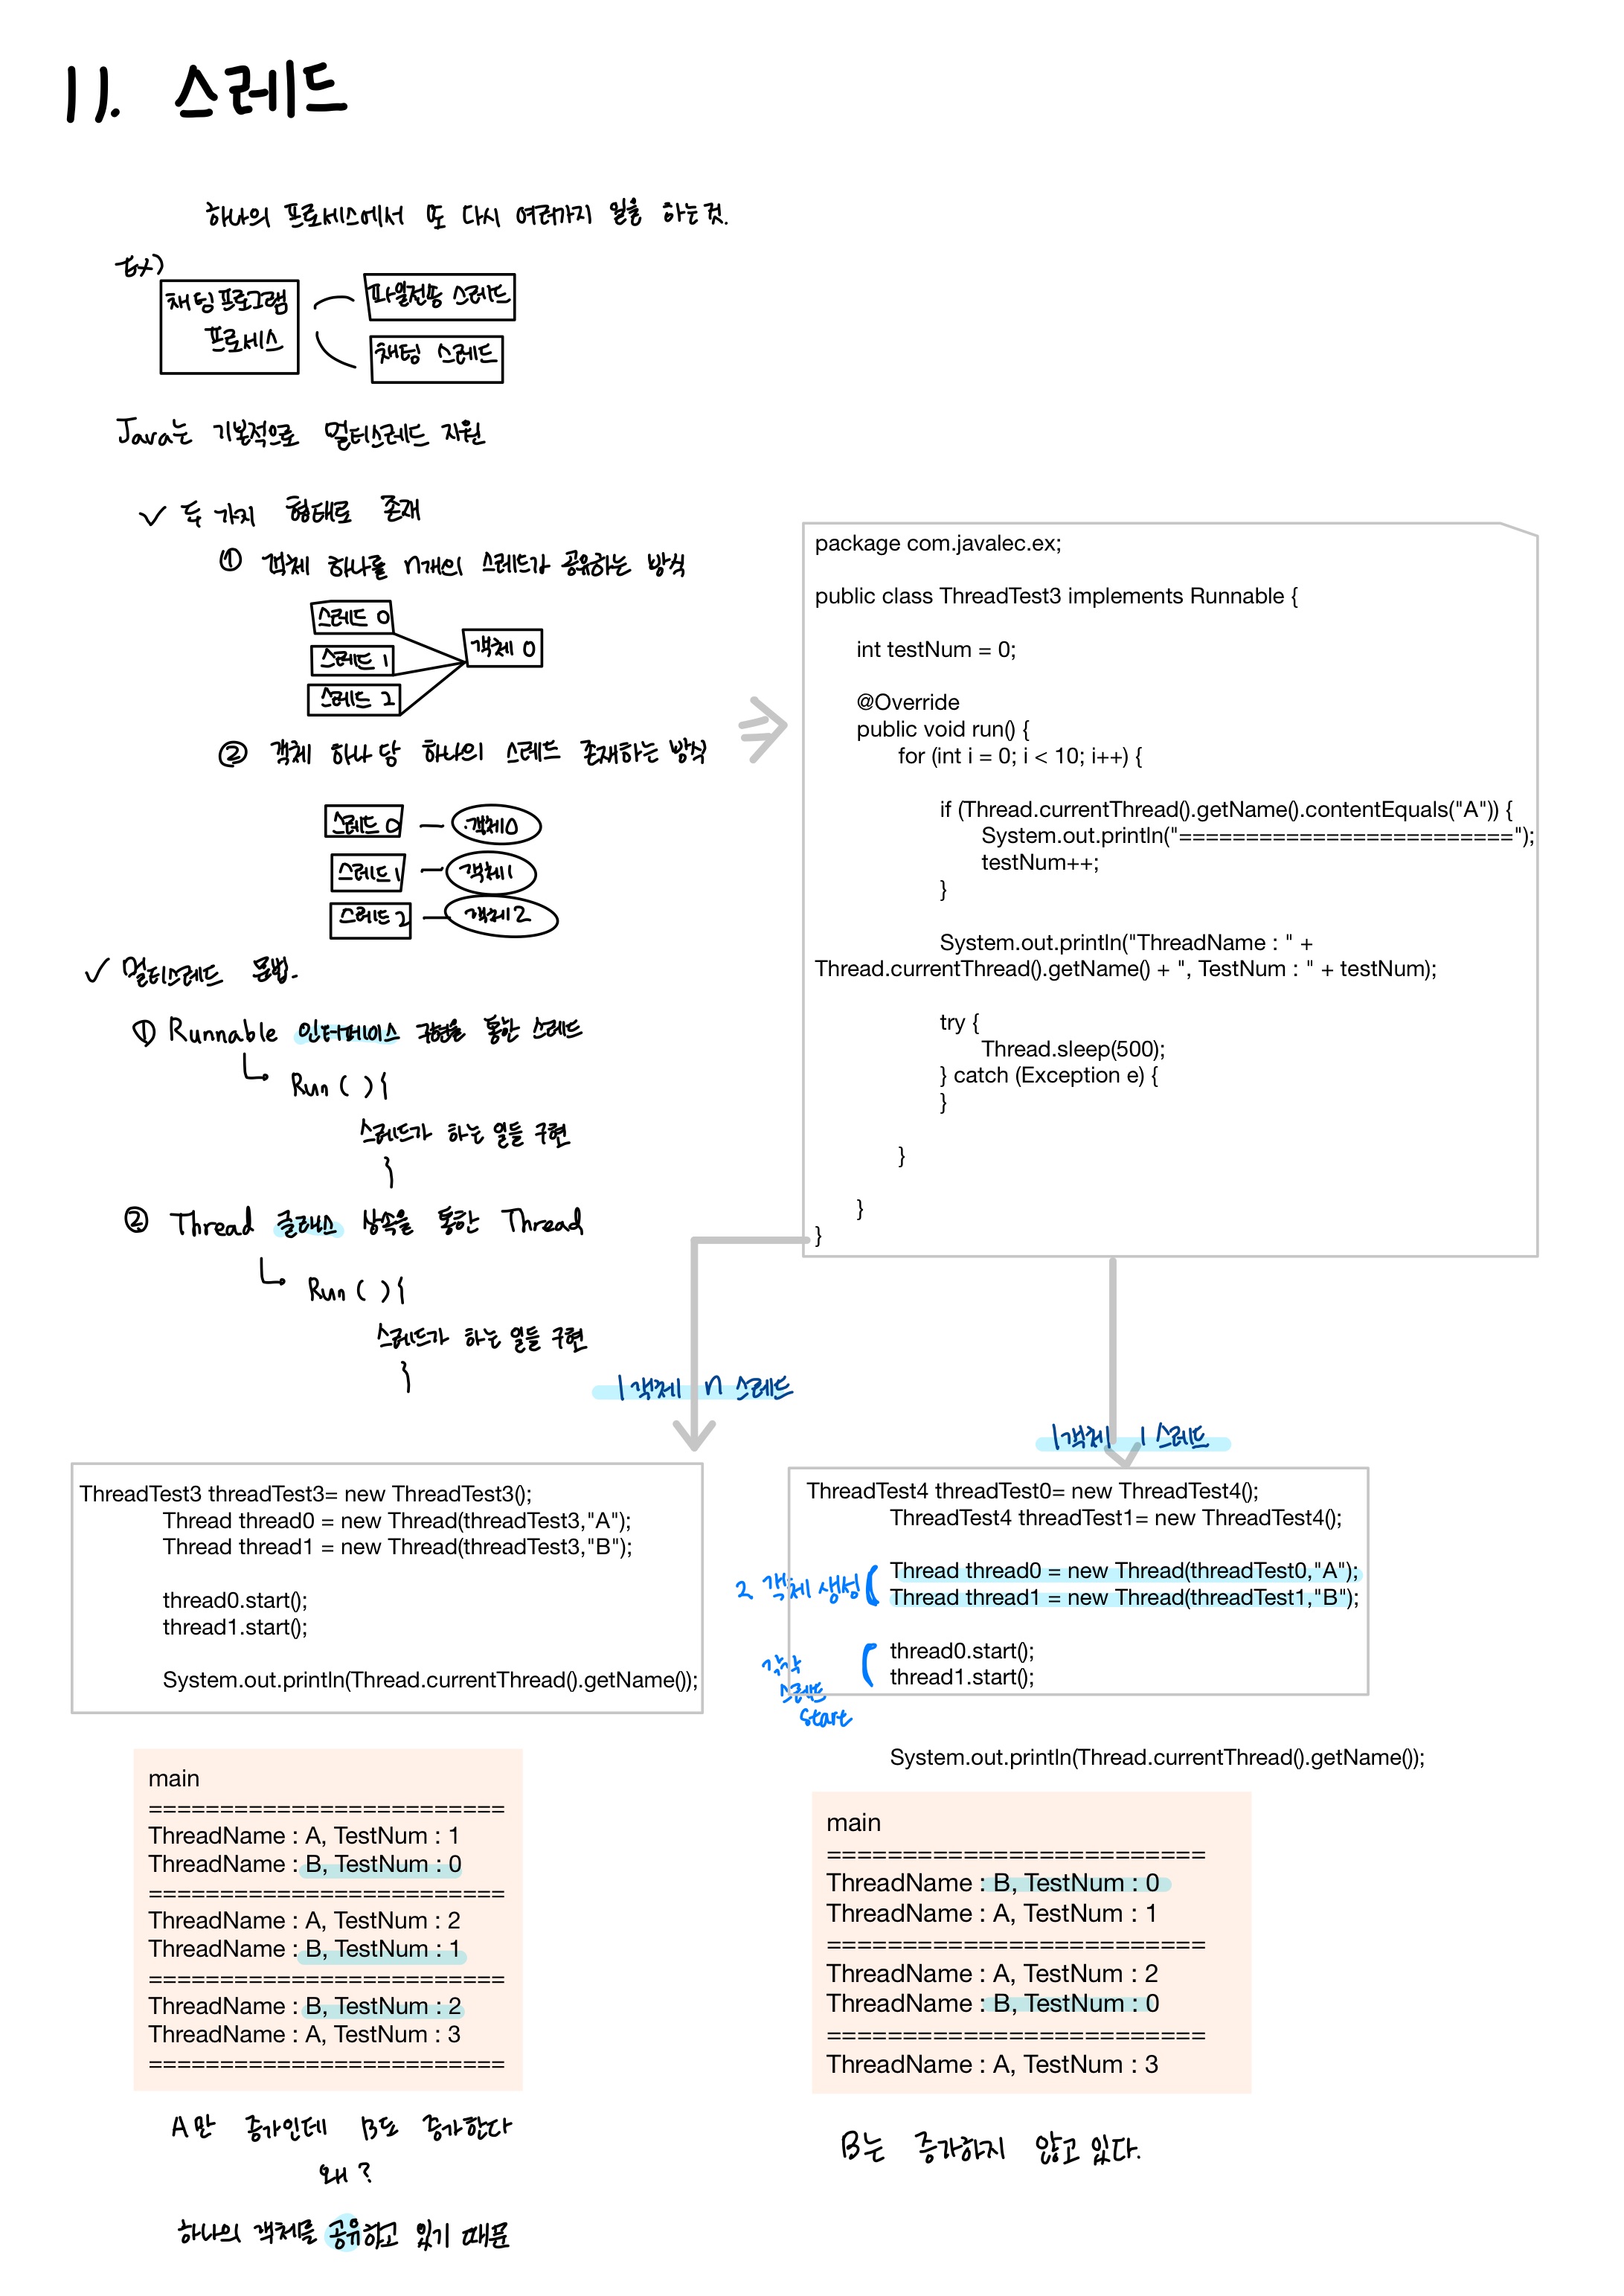 11. 스레드
하나의 프로세스에서 또 다시 여러가지 일을 하는것.
Ex)
채팅프로그램
프로세스
파일전송 스레드
채팅 스레드
Java는 기본적으로 멀티스레드 지원
✓ 두 가지 형태로 존재
① 객체 하나를 n개의 스레드가 공유하는 방식
스레드 0
스레드 1
스레드 2
객체 0
② 객체 하나 당 하나의 스레드 존재하는 방식
스레드 0 — 객체0
스레드 1 — 객체1
스레드 2 — 객체2
✓ 멀티스레드 문법.
① Runnable 인터페이스 구현을 통한 스레드
Run ( ) {
스레드가 하는 일들 구현
}
② Thread 클래스 상속을 통한 Thread
Run ( ) {
스레드가 하는 일들 구현
}
package com.javalec.ex;
public class ThreadTest3 implements Runnable {
int testNum = 0;
@Override
public void run() {
for (int i = 0; i < 10; i++) {
if (Thread.currentThread().getName().contentEquals("A")) {
System.out.println("=========================");
testNum++;
}
System.out.println("ThreadName : " +
Thread.currentThread().getName() + ", TestNum : " + testNum);
try {
Thread.sleep(500);
} catch (Exception e) {
}
}
}
}
1객체 n 스레드
ThreadTest3 threadTest3= new ThreadTest3();
Thread thread0 = new Thread(threadTest3,"A");
Thread thread1 = new Thread(threadTest3,"B");
thread0.start();
thread1.start();
System.out.println(Thread.currentThread().getName());
main
=========================
ThreadName : A, TestNum : 1
ThreadName : B, TestNum : 0
=========================
ThreadName : A, TestNum : 2
ThreadName : B, TestNum : 1
=========================
ThreadName : B, TestNum : 2
ThreadName : A, TestNum : 3
=========================
A만 증가인데 B도 증가한다
왜?
하나의 객체를 공유하고 있기 때문
1객체 1스레드
ThreadTest4 threadTest0= new ThreadTest4();
ThreadTest4 threadTest1= new ThreadTest4();
2 객체 생성
Thread thread0 = new Thread(threadTest0,"A");
Thread thread1 = new Thread(threadTest1,"B");
각각
스레드
start
thread0.start();
thread1.start();
System.out.println(Thread.currentThread().getName());
main
=========================
ThreadName : B, TestNum : 0
ThreadName : A, TestNum : 1
=========================
ThreadName : A, TestNum : 2
ThreadName : B, TestNum : 0
=========================
ThreadName : A, TestNum : 3
B는 증가하지 않고 있다.